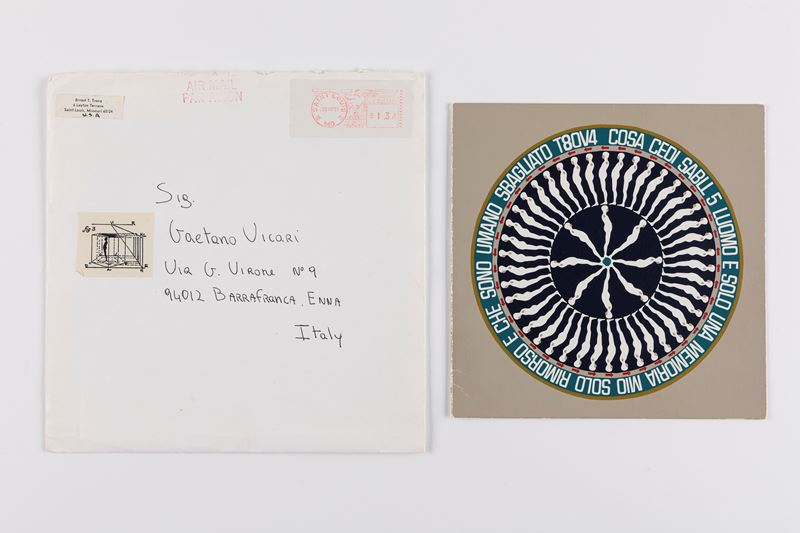 Ernest T. Trova
6 Layton Terrace
Saint-Louis, Missouri 63124
U.S.A
AIR MAIL
PAR AVION
SAINT LOUIS
MO
Sig.
Gaetano Vicari
Via G. Virone N° 9
94012 Barrafranca, Enna
Italy
fig 3
COSA CEDI SABLL 5 LUOMO E SOLO UNA MEMORIA MIO SOLO RIMORSO E CHE SONO UMANO SBAGLIATO T8OV4